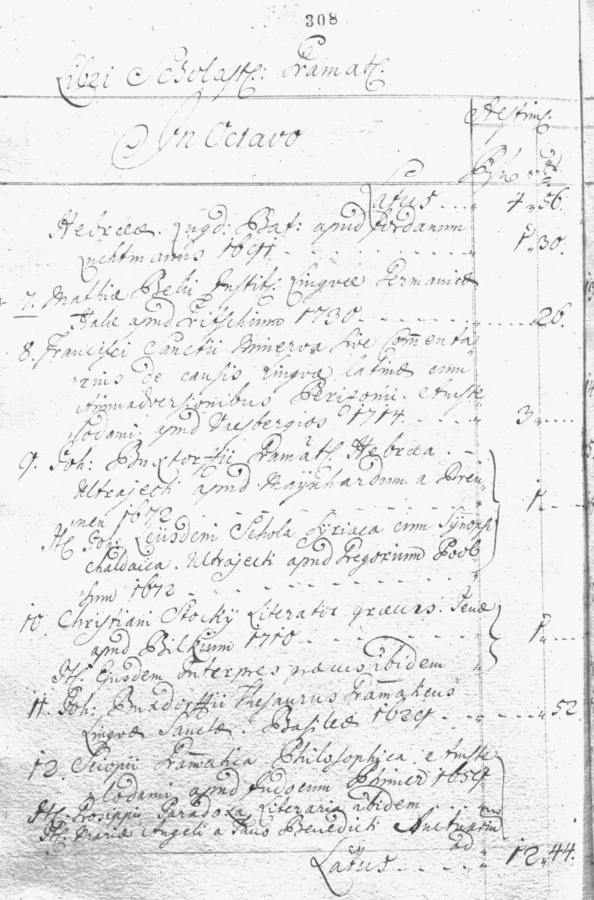 308
Libri Scholast: Gramat:
In Octavo
Aestim:
Rf xr
Latus - - - - 4 " 56.
Hebrææ. Lugd: Bat: apud Jordanum
Luchtmanns 1691. - - - 1 " 30.
7. Mathiæ Belii Instit: Linguæ Germanicæ
Halæ apud Fritschium 1730. - - - 26.
8. Francisci Sanctii Minerva sive Commenta
rius de causis Linguæ latinæ cum
Animadversionibus Perizoni. Amste
lodami apud 1714. - - - 3 " - - -
9. Joh: Buxtorffii Gramat: Hebræa. - -
Ultrajecti apud Maÿnhardum a Dreu
nen 1672 - - - 1 " - - -
It: Joh: Leüsdeni Schola Sÿriaca cum Sÿnops
Chaldaica. Ultrajecti apud Gregorium Poob
sum 1672 - - -
10. Christiani Stockÿ Literator græcus. Jenæ
apud Bilkium 1710 - - - 1 " - - -
It: Ejusdem Interpres græcus ibidem
11. Joh: Buxdorffii Thesaurus Gramaticus
Linguæ Sanctæ. Basileæ 1629. - - - 52
12. Sciopii Gramatica Philosophica. Amste
lodami apud Judocum 1659
It: Prosippii Paradoxa Literaria ibidem - - -
It: Mariæ Angeli a Fano Benedicti Auctuarium
ad
Latus - - - - 12 " 44.